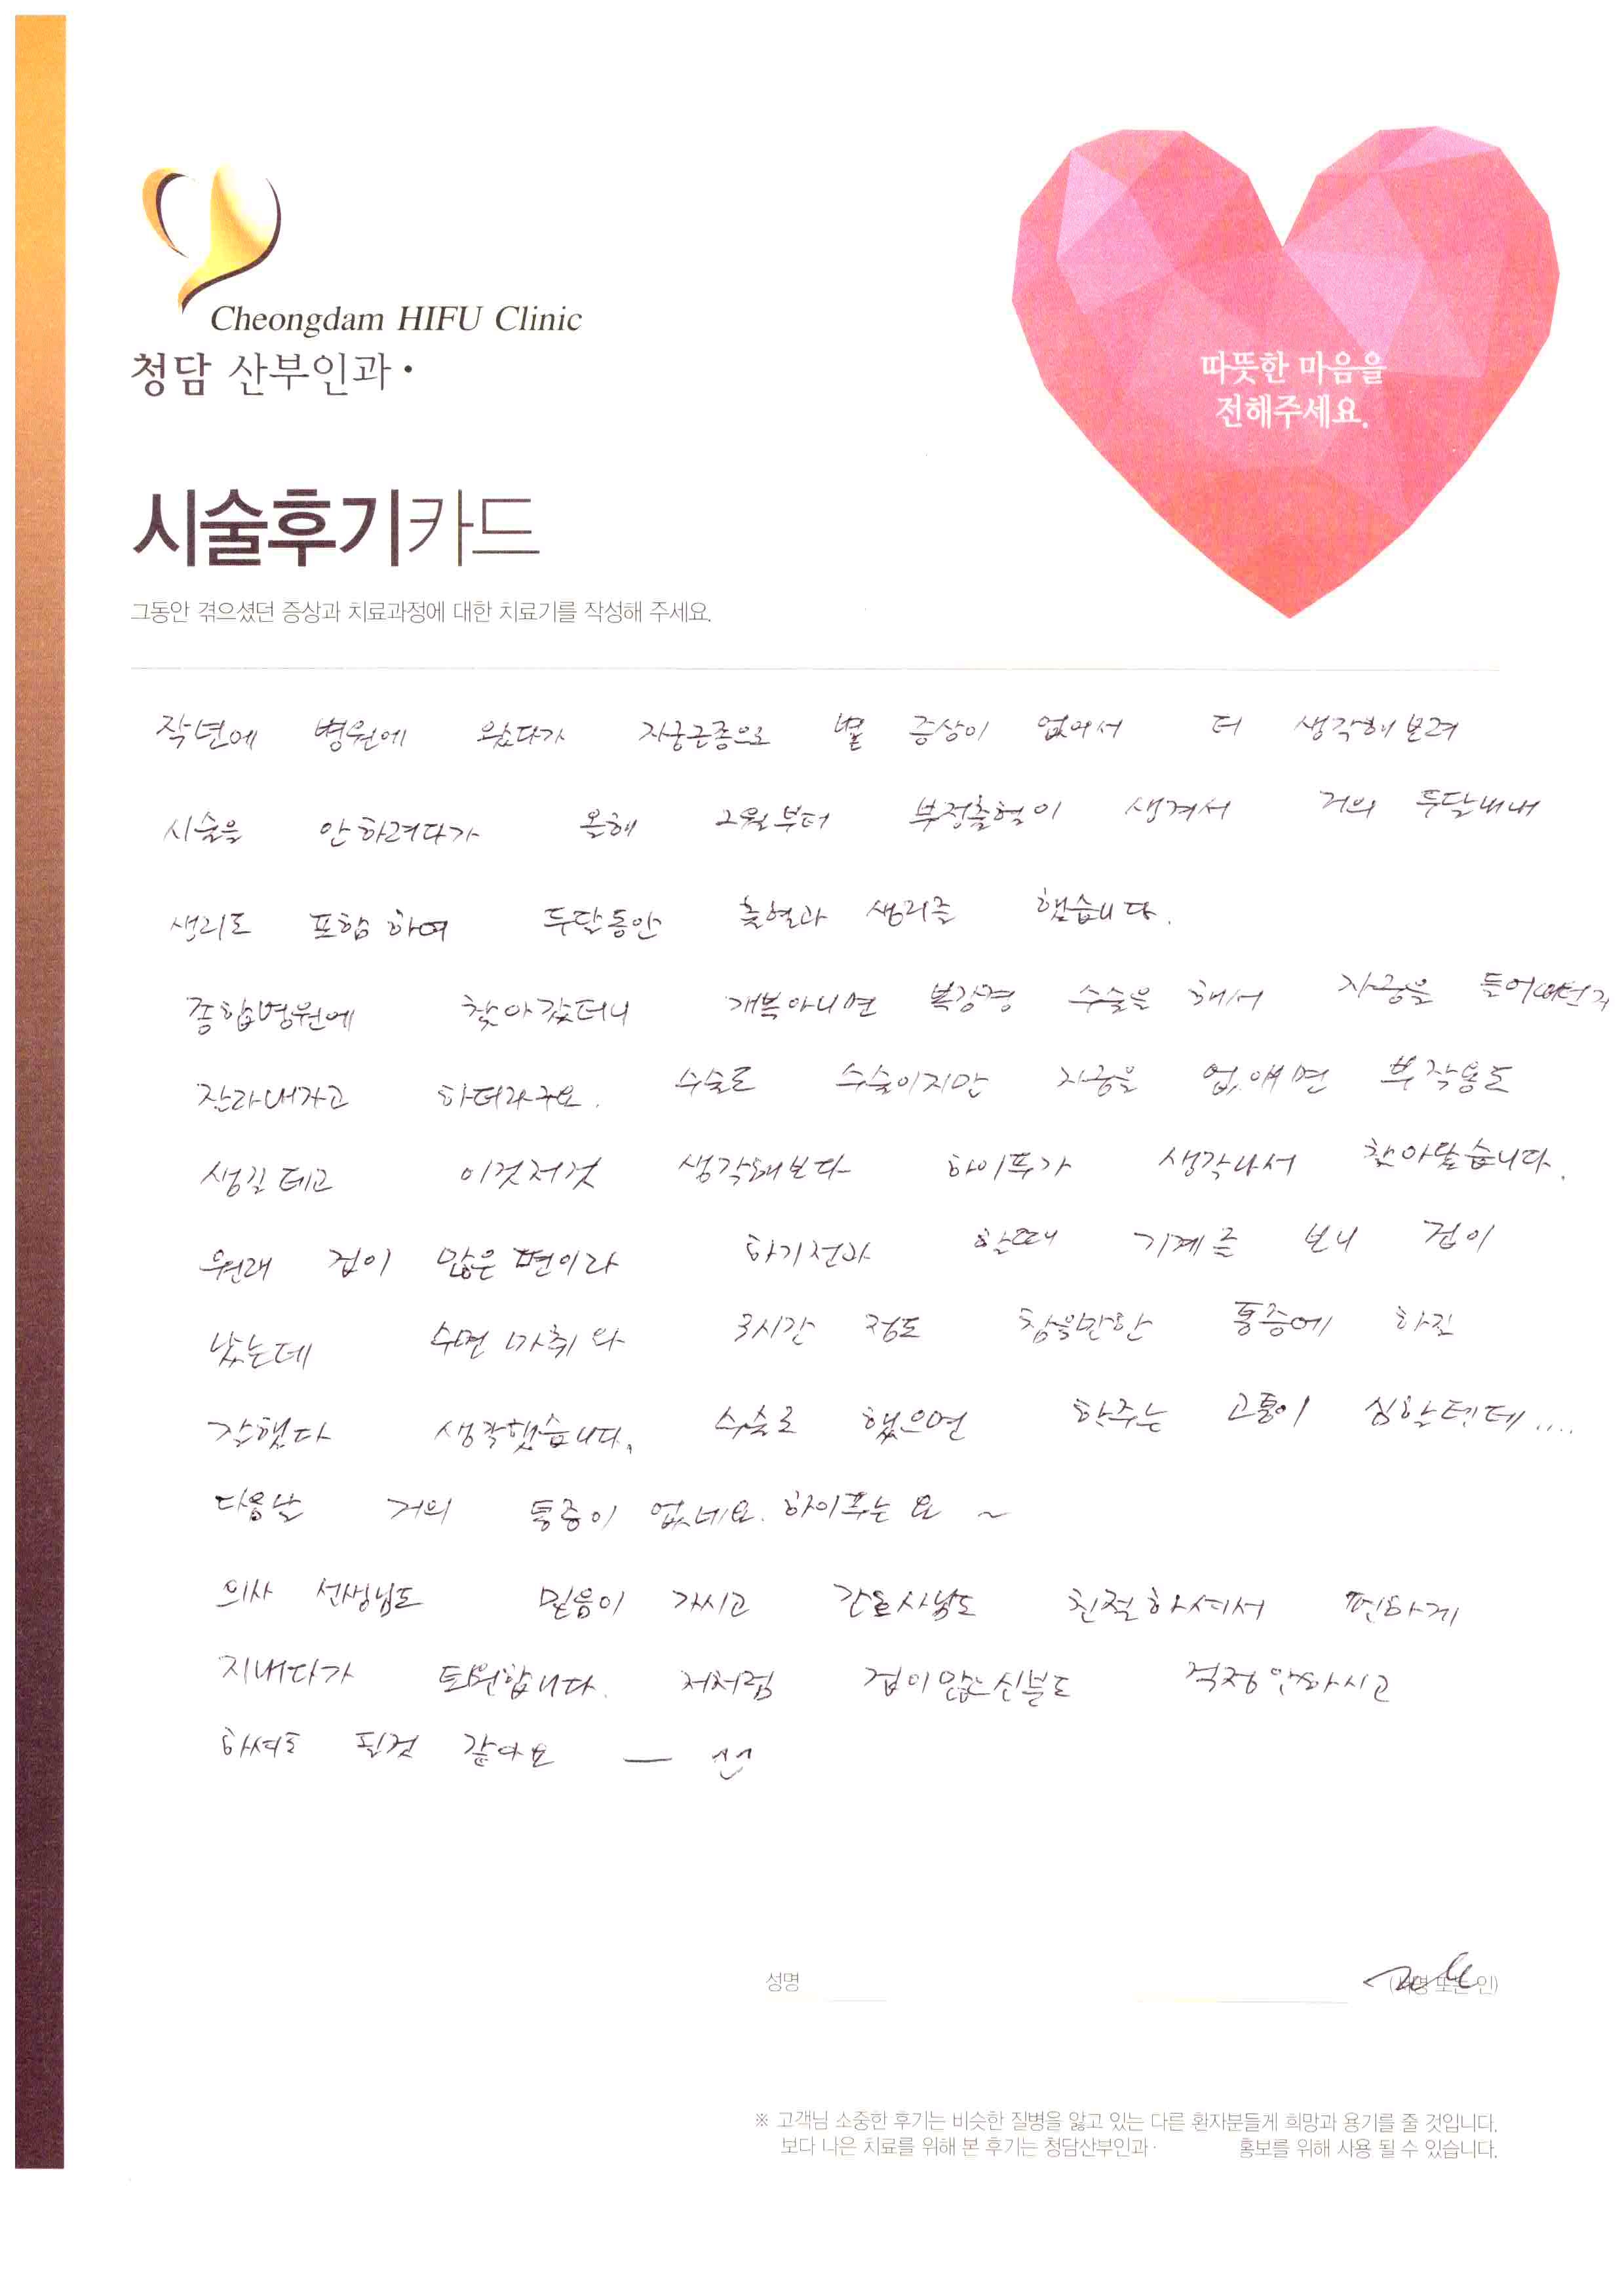 Cheongdam HIFU Clinic
청담 산부인과·
따뜻한 마음을
전해주세요.
시술후기카드
그동안 겪으셨던 증상과 치료과정에 대한 치료기를 작성해 주세요.
작년에 병원에 왔다가 자궁근종으로 별 증상이 없어서 더 생각해보려
시술을 안하려다가 올해 2월부터 부정출혈이 생겨서 거의 두달내내
생리도 포함하여 두달동안 출혈과 생리를 했습니다.
종합병원에 찾아갔더니 개복아니면 복강경 수술을 해서 자궁을
잘라내자고 하더라구요. 수술도 수술이지만 자궁을 없애면 부작용도
생길테고 이것저것 생각해보다 하이푸가 생각나서 찾아왔습니다.
원래 겁이 많은 편이라 하기전과 할때 기계를 보니 겁이
났는데 수면마취와 3시간 정도 참을만한 통증에 하길
잘했다 생각했습니다. 수술로 했으면 한주는 고통이 심할텐데....
다음날 거의 통증이 없네요. 하이푸는요~
의사 선생님도 믿음이 가시고 간호사님도 친절하셔서 편하게
지내다가 퇴원합니다. 저처럼 겁이많은신분도 걱정안하시고
하셔도 될것 같아요 ㅡ
성명 (서명 또는 인)
※ 고객님 소중한 후기는 비슷한 질병을 앓고 있는 다른 환자분들게 희망과 용기를 줄 것입니다.
보다 나은 치료를 위해 본 후기는 청담산부인과· 홍보를 위해 사용 될 수 있습니다.